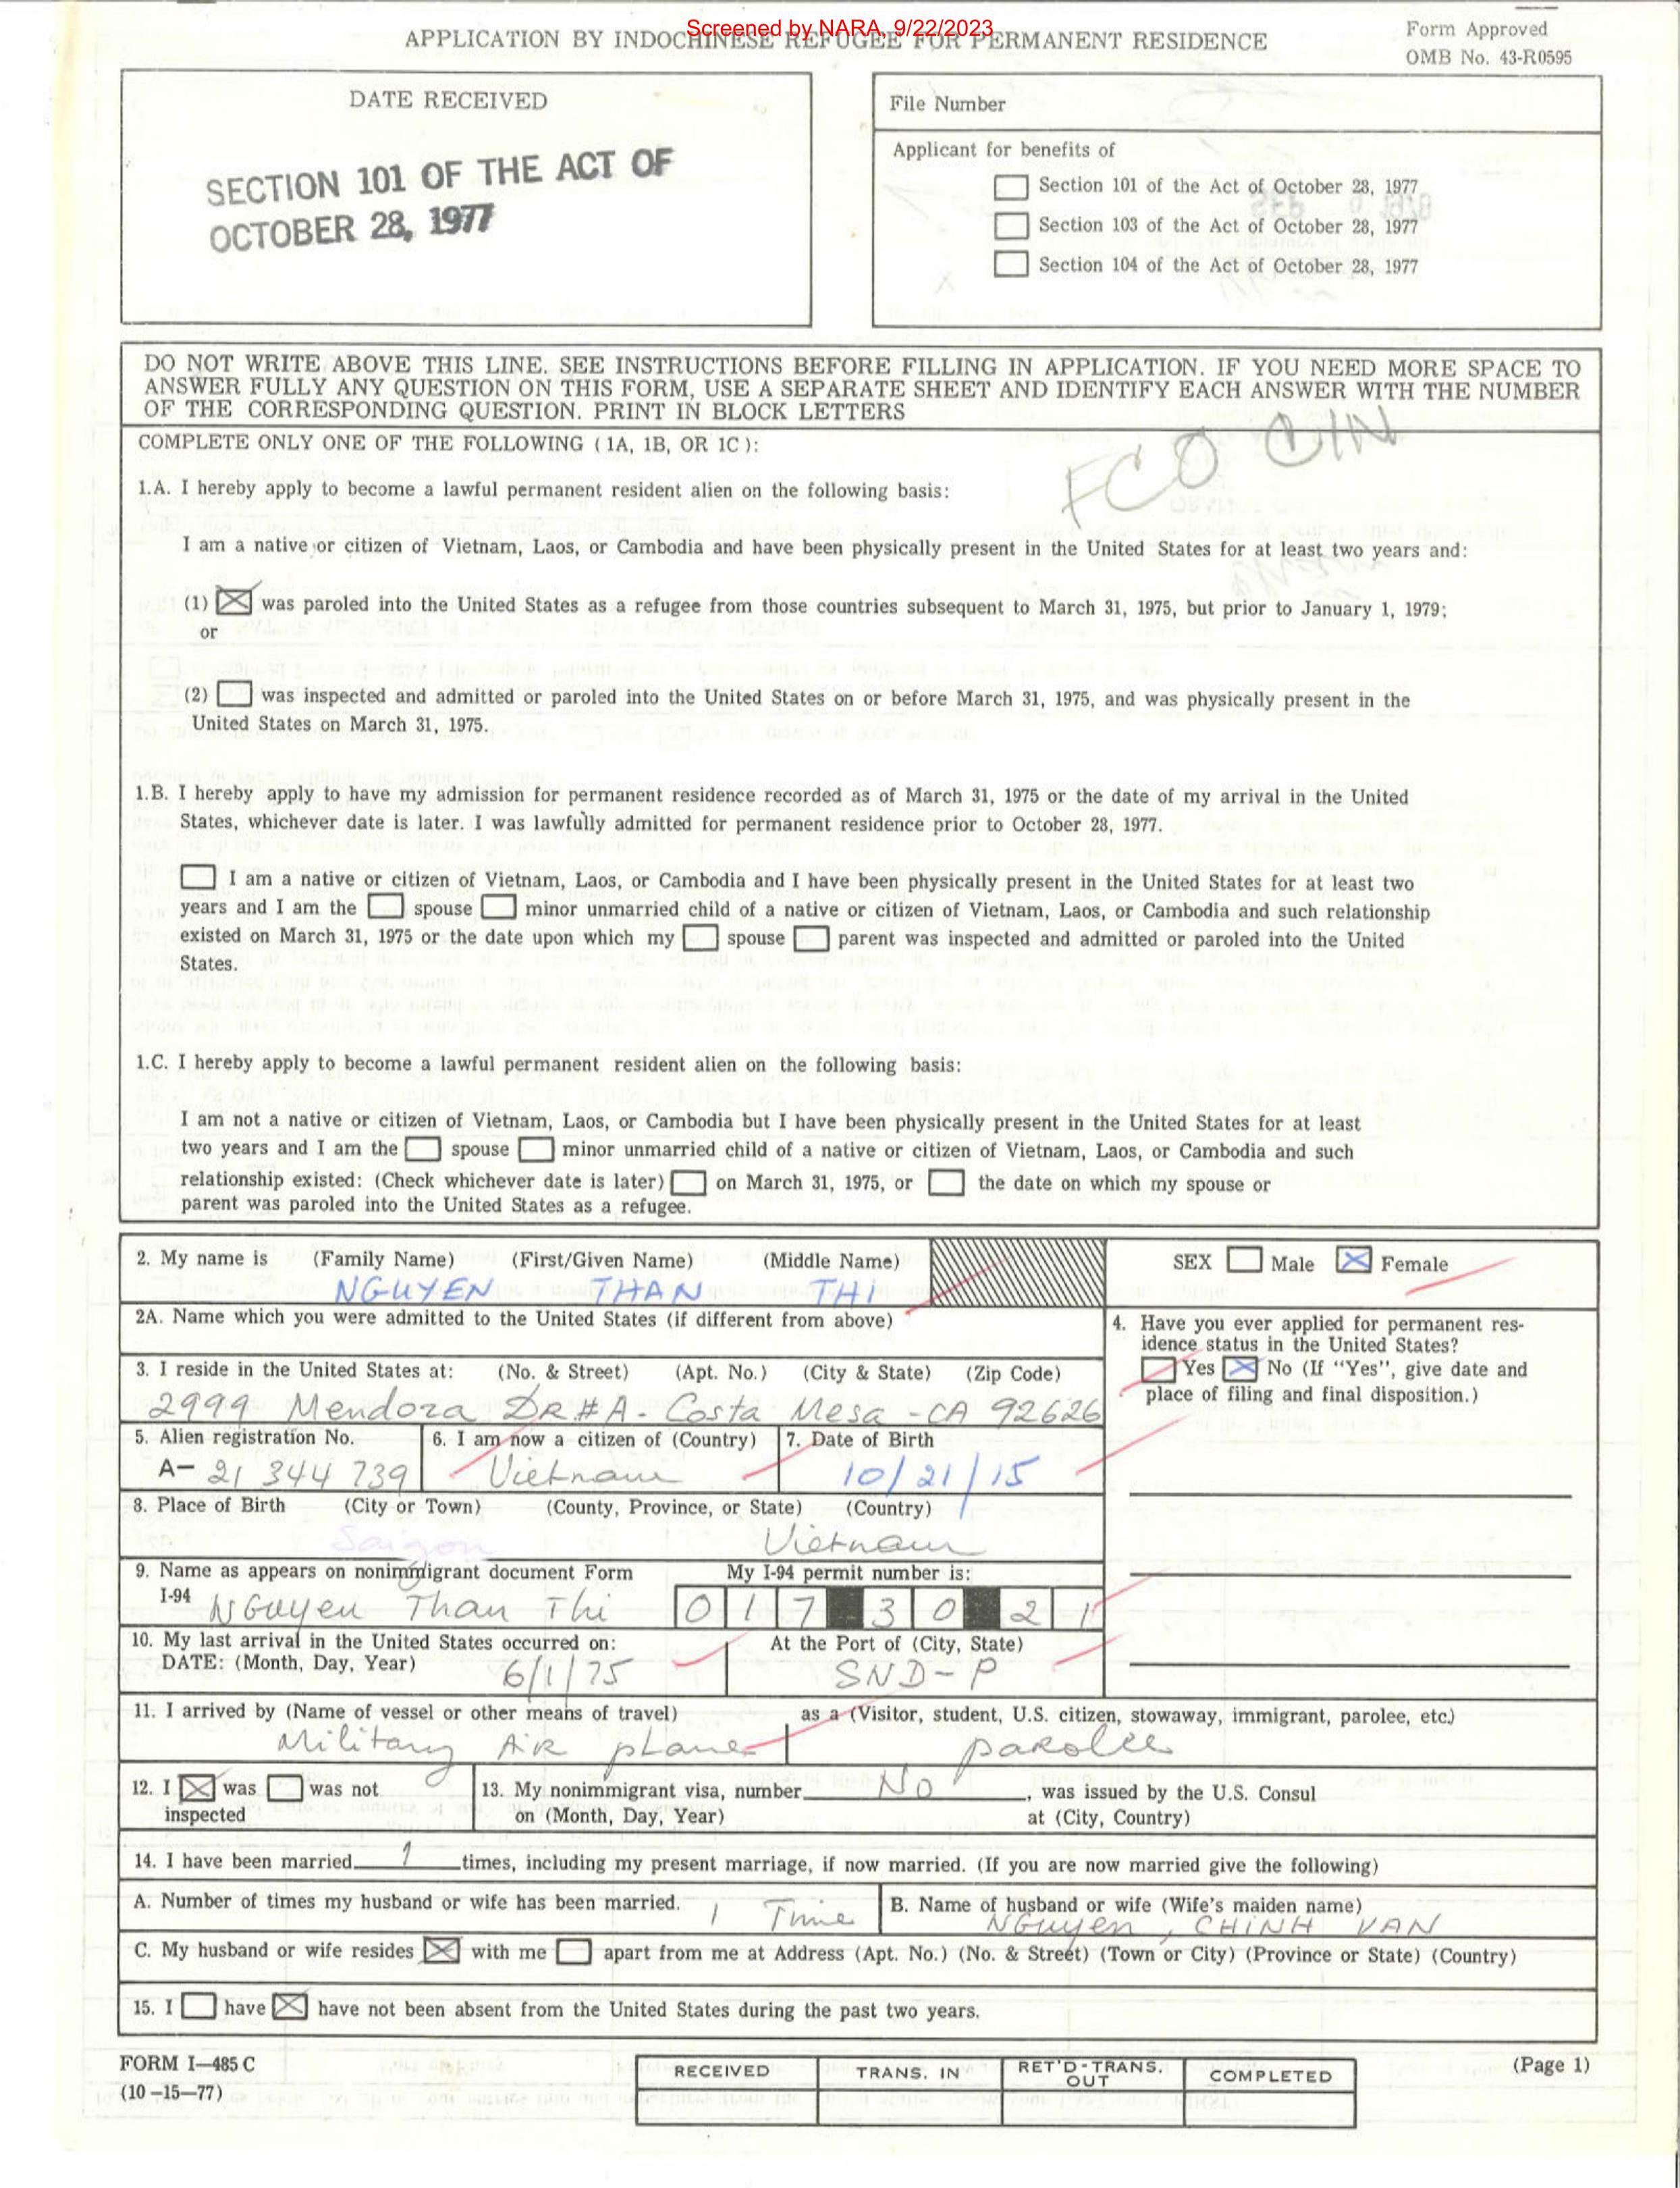 Screened by NARA, 9/22/2023
APPLICATION BY INDOCHINESE REFUGEE FOR PERMANENT RESIDENCE
Form Approved
OMB No. 43-R0595
DATE RECEIVED
SECTION 101 OF THE ACT OF
OCTOBER 28, 1977
File Number
Applicant for benefits of
Section 101 of the Act of October 28, 1977
Section 103 of the Act of October 28, 1977
Section 104 of the Act of October 28, 1977
DO NOT WRITE ABOVE THIS LINE. SEE INSTRUCTIONS BEFORE FILLING IN APPLICATION. IF YOU NEED MORE SPACE TO
ANSWER FULLY ANY QUESTION ON THIS FORM, USE A SEPARATE SHEET AND IDENTIFY EACH ANSWER WITH THE NUMBER
OF THE CORRESPONDING QUESTION. PRINT IN BLOCK LETTERS
COMPLETE ONLY ONE OF THE FOLLOWING (1A, 1B, OR 1C):
FCO
1.A. I hereby apply to become a lawful permanent resident alien on the following basis:
I am a native or citizen of Vietnam, Laos, or Cambodia and have been physically present in the United States for at least two years and:
(1) was paroled into the United States as a refugee from those countries subsequent to March 31, 1975, but prior to January 1, 1979;
or
(2) was inspected and admitted or paroled into the United States on or before March 31, 1975, and was physically present in the
United States on March 31, 1975.
1.B. I hereby apply to have my admission for permanent residence recorded as of March 31, 1975 or the date of my arrival in the United
States, whichever date is later. I was lawfully admitted for permanent residence prior to October 28, 1977.
I am a native or citizen of Vietnam, Laos, or Cambodia and I have been physically present in the United States for at least two
years and I am the spouse minor unmarried child of a native or citizen of Vietnam, Laos, or Cambodia and such relationship
existed on March 31, 1975 or the date upon which my spouse parent was inspected and admitted or paroled into the United
States.
1.C. I hereby apply to become a lawful permanent resident alien on the following basis:
I am not a native or citizen of Vietnam, Laos, or Cambodia but I have been physically present in the United States for at least
two years and I am the spouse minor unmarried child of a native or citizen of Vietnam, Laos, or Cambodia and such
relationship existed: (Check whichever date is later) on March 31, 1975, or the date on which my spouse or
parent was paroled into the United States as a refugee.
2. My name is (Family Name) (First/Given Name) (Middle Name)
NGUYEN THAN THI
SEX Male Female
2A. Name which you were admitted to the United States (if different from above)
3. I reside in the United States at: (No. & Street) (Apt. No.) (City & State) (Zip Code)
2999 Mendoza DR#A - Costa Mesa - CA 92626
4. Have you ever applied for permanent res-
idence status in the United States?
Yes No (If "Yes", give date and
place of filing and final disposition.)
5. Alien registration No.
A- 21 344 739
6. I am now a citizen of (Country)
Vietnam
7. Date of Birth
10/21/15
8. Place of Birth (City or Town) (County, Province, or State) (Country)
Saigon Vietnam
9. Name as appears on nonimmigrant document Form
I-94 NGuyen Than Thi
My I-94 permit number is:
0 1 7 3 0 2 1
10. My last arrival in the United States occurred on:
DATE: (Month, Day, Year) 6/1/75
At the Port of (City, State)
SND-P
11. I arrived by (Name of vessel or other means of travel)
Military AIR plane
as a (Visitor, student, U.S. citizen, stowaway, immigrant, parolee, etc.)
parolee
12. I was was not
inspected
13. My nonimmigrant visa, number No, was issued by the U.S. Consul
on (Month, Day, Year) at (City, Country)
14. I have been married 1 times, including my present marriage, if now married. (If you are now married give the following)
A. Number of times my husband or wife has been married. 1 Time
B. Name of husband or wife (Wife's maiden name)
NGuyen, CHINH VAN
C. My husband or wife resides with me apart from me at Address (Apt. No.) (No. & Street) (Town or City) (Province or State) (Country)
15. I have have not been absent from the United States during the past two years.
FORM I-485 C
(10-15-77)
RECEIVED
TRANS. IN
RET'D-TRANS. OUT
COMPLETED
(Page 1)